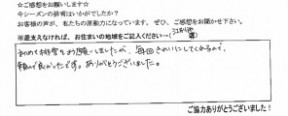 ☆ご感想をお願いします☆
今シーズンの排雪はいかがでしたか？
お客様の声が、私たちの原動力になっています。ぜひ、ご感想をお聞かせ下さい。
※差支えなければ、お住まいの地域をご記入ください→(
初めて排雪をお願いしましたが、毎回きれいにしてくれるので、
頼んで良かったです。ありがとうございました。
ご協力ありがとうございました！